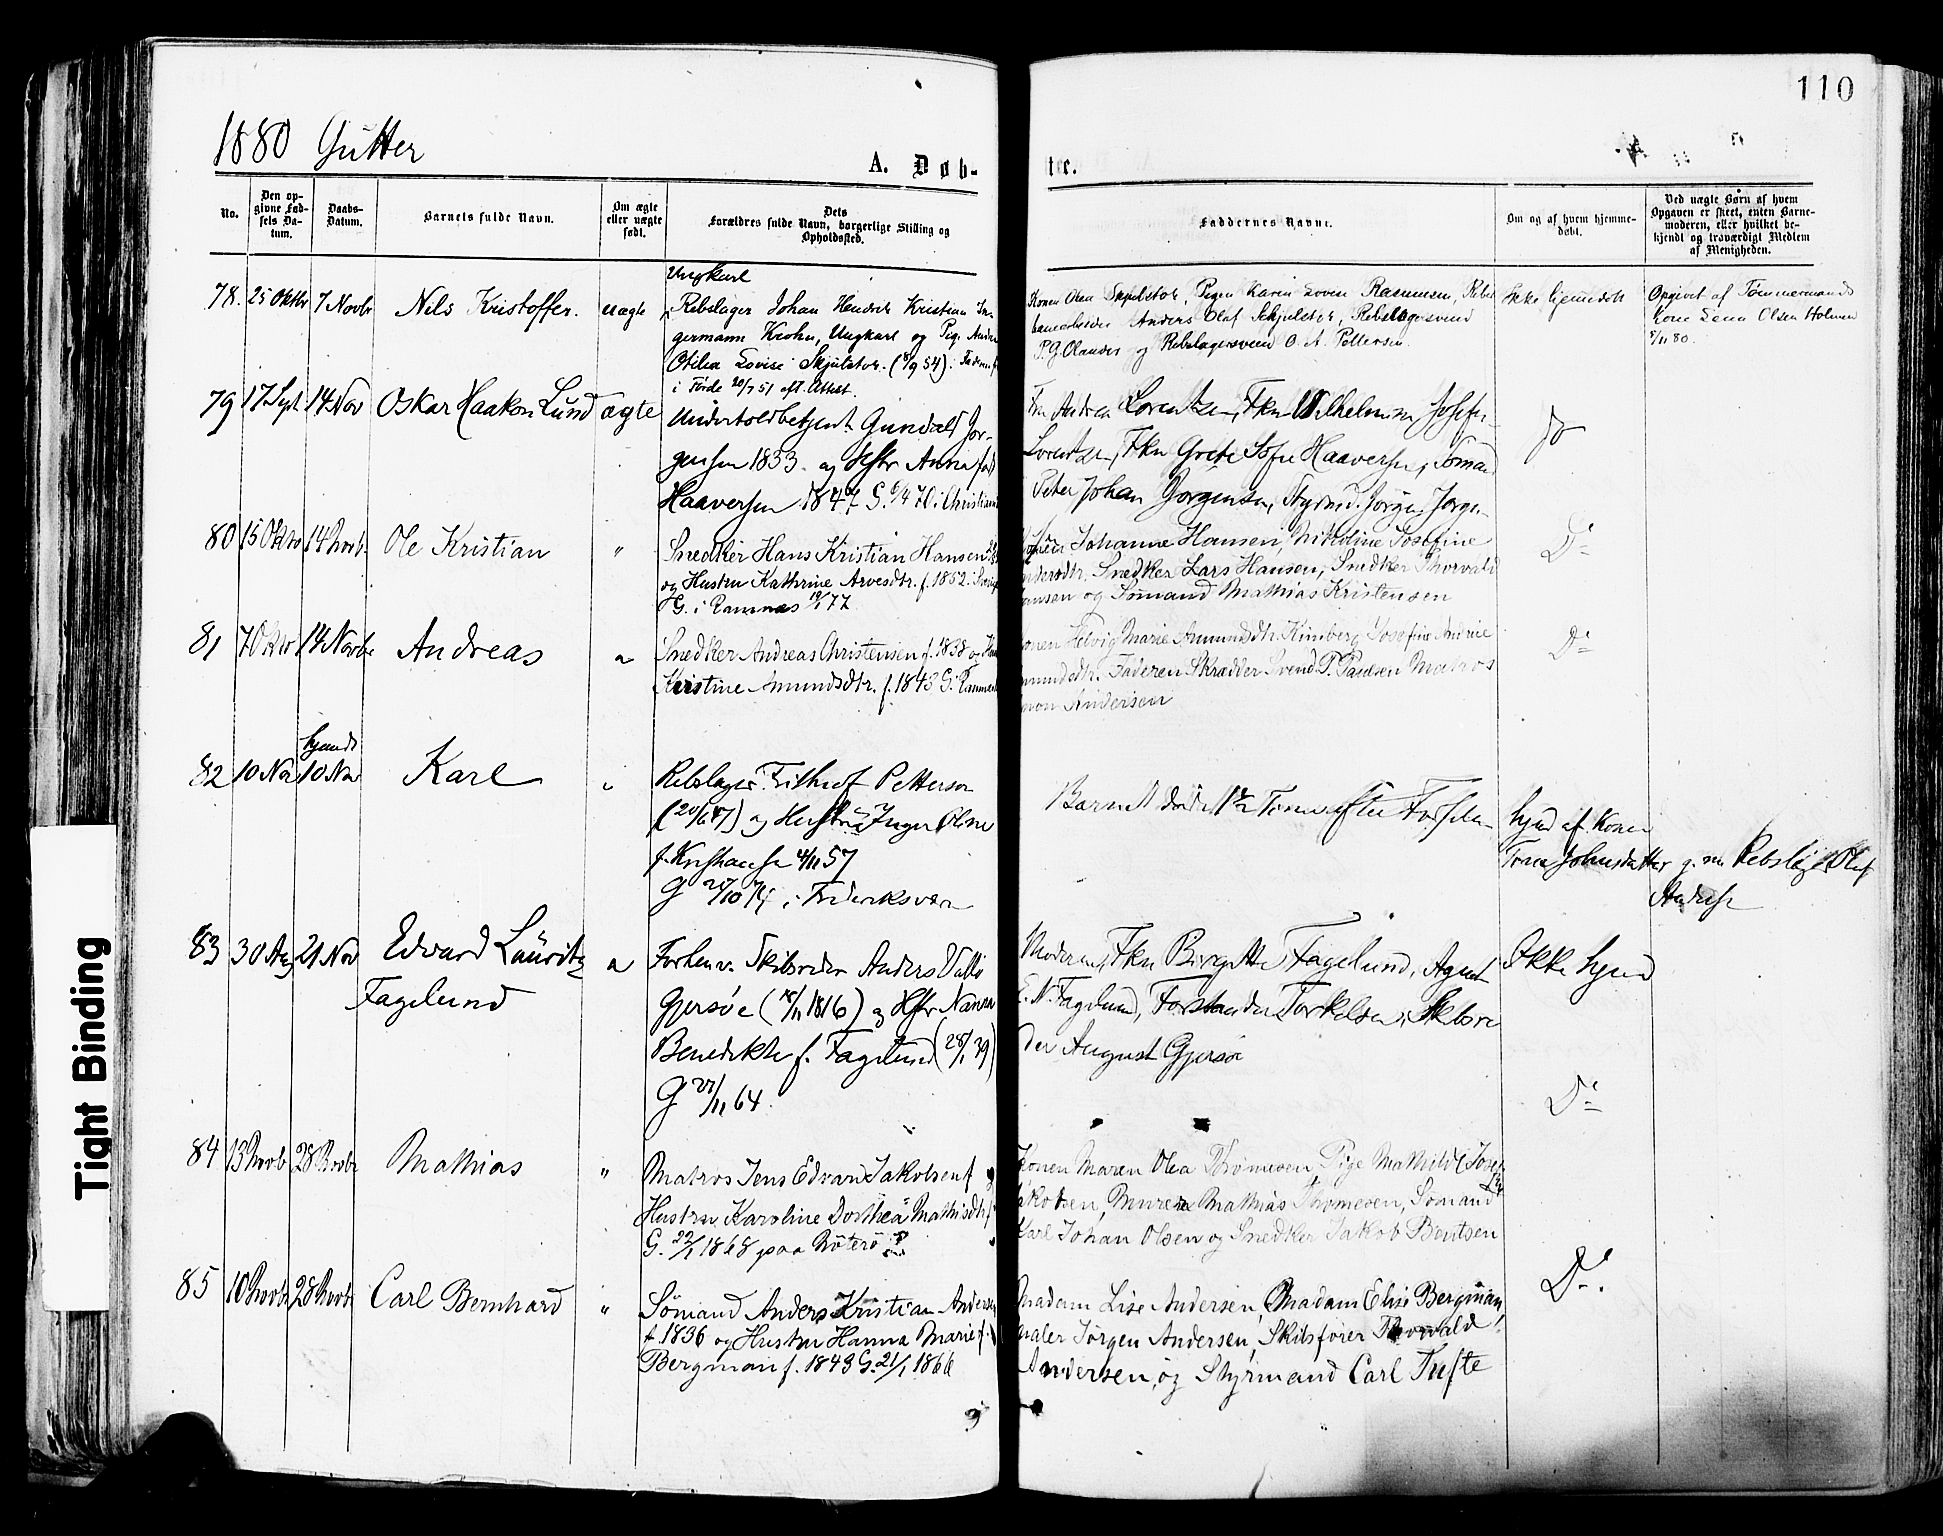 110
1880 Gutter
A. Døb-
te.
No.
Den op-
givne Fød-
sels Da-
tum.
Daabs-
Datum.
Barnets fulde Navn.
Om ægte
eller uægte
født.
Dets
Forældres fulde Navn, borgerlige Stilling og
Opholdssted.
Faddernes Navne.
Om og af hvem hjemme-
døbt.
Ved uægte Børn af hvem
Opgaven er skeet, enten Barne-
moderen, eller hvilket be-
kjendt og troværdigt Medlem
af Menigheden.
78. 25 Oktbr 7 Novbr Nils Kristoffer. uægte
Ungkarl
Rebslager Johan Hendrik Kristian In-
germann Krohn, Ungkarl og Pig. Andrea
Otilia Lovise Skjulstok. (8/9 54)
i Førde 20/7 51 eft. Attest.
Konen Olea Skjulstok, Pigen Karen Lovise Rasmussen,
Anders Olaf Skjulstok, Rebslagersvend
P. G. Olander og Rebslagersvend O. A. Pettersen.
Ikke hjemmedøbt
Opgivet af Tømmermands
Kone Lena Olsen Holmen
5/11 80.
79 17 Sept 14 Nov Oskar Haakon Lund ægte
Undertoldbetjent Gunvald Jør-
gensen 1833. og Hstr Anna født
Haaversen 1847 G. 6/4 70 i Christian
Fru Andrea Lorentzen, Fkn Wilhelmine Josefin
Lorentzen, Fkn Grete Sofie Haaversen, Sømand
Peter Johan Jørgensen, Styrmd. Jørgen Jørgen
do
80 15 Oktbr 14 Novb. Ole Kristian "
Snedker Hans Kristian Hansen
og Hustru Kathrine Arvesdtr. f. 1852.
G. i Ramnæs 19/1 77
Johanne Hansen, Nikoline Josefine
Andersdtr, Snedker Lars Hansen, Snedker Thorvald
Hansen og Sømand Mathias Kristensen
Do
81 7 Oktbr 14 Novbr Andreas "
Snedker Andreas Christensen f. 1838 og
Kristine Amundsdtr. f. 1843 G. Ramnæs
Konen Helvig Marie Amundsdtr. Kimberg, Josefine Andrine
Amundsdtr. Faderen Skrædder Svend P. Paulsen Matros
Andersen
Do
hjemdt
82 10 Nov 10 Nov Karl "
Rebslager Frithiof Petterson
(20/6 47) og Hustru Inger Oline
f. Kristiansen 4/11 57
G 20/10 74 i Frederiksværn
Barnet døde 1½ Time efter Fødselen
hjmd af Konen
Tonea Johnsdatter g. m. Rebslager Oluf
Andersen
83 30 Aug 21 Nov Edvard Lauritz "
Fagelund
Forhenv. Skibsreder Anders Vallø
Gjersøe (18/11 1816) og Hstr Nanna
Benedikte f. Fagelund (28/1 39)
G 27/11 64.
Moderen, Fkn Birgitte Fagelund, Agent
E. N. Fagelund, Forstander Torkelsen, Skibsre
der August Gjersøe
Ikke hjmd
Do
84 13 Novb 28 Novbr Mathias "
Matros Jens Edvard Jakobsen f
Hustru Karoline Dorthea Mathisdtr f
G. 22/1 1868 paa Nøterø ?
Konen Maren Olea Thomesen, Pige Mathilde Josef
Jakobsen, Murer Mathias Thomesen, Sømand
Karl Johan Olsen og Snedker Jakob Bentsen
85 10 Novbr 28 Novbr Carl Bernhard "
Sømand Anders Kristian Andersen
f. 1836 og Hustru Hanna Marie f.
Bergman f. 1843 G. 21/1 1866
Madam Lise Andersen, Madam Elise Bergman,
Maler Jørgen Andersen, Skibsfører Thorvald
Andersen, og Styrmand Carl Tufte
Do.
Tight Binding